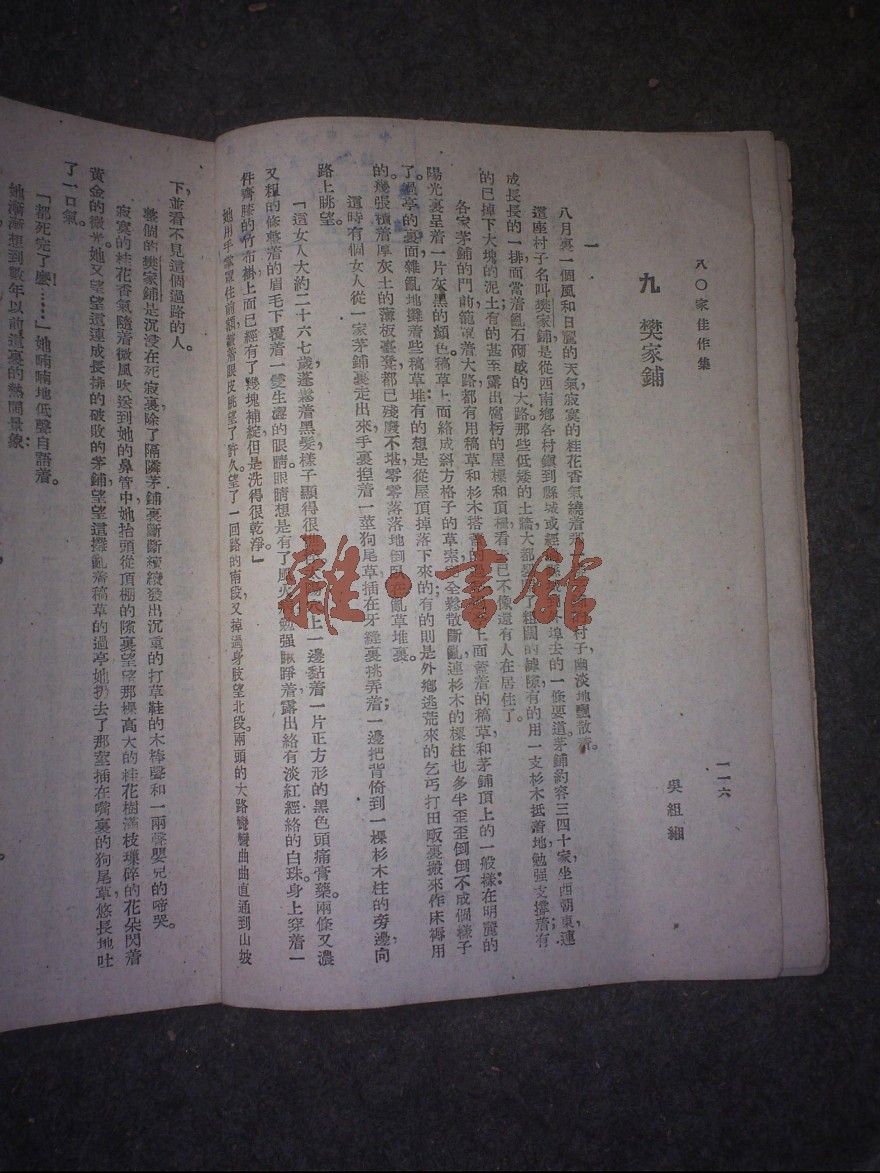 八〇家佳作集
一一六
九 樊家鋪
吳組緗
一
八月裏一個風和日麗的天氣，寂寞的桂花香氣繞着 村子，幽淡地飄散着。
這座村子名叫樊家鋪，是從西南鄉各村鎮到縣城或經 埠去的一條要道。茅鋪約容三四十家，坐西朝東，連
成長長的一排，面當着亂石砌成的大路。那些低矮的土牆，大都 了粗闊的罅隙，有的用一支杉木抵着地，勉强支撐着；有
的已掉下大塊的泥土，有的甚至露出腐朽的屋樑和頂柵，看去已不像還有人在居住了。
各家茅鋪的門前，籠罩着大路，都有用稿草和杉木搭蓄的 上面蓋着的稿草，和茅鋪頂上的一般樣：在明麗的
陽光裏呈着一片灰黑的顏色。稿草上面絡成斜方格子的草索，完全鬆散斷亂；連杉木的樑柱也多半歪歪倒倒，不成個樣子
了。過亭的裏面雜亂地攤着些稿草堆，有的想是從屋頂掉落下來的，有的則是外鄉逃荒來的乞丐打田畈裏搬來作床褥用
的。幾張積着厚灰土的薄板臺凳都已殘廢不堪，零零落落地倒臥在亂草堆裏。
這時有個女人從一家茅鋪裏走出來，手裏捏着一莖狗尾草，插在牙縫裏挑弄着；一邊把背倚到一棵杉木柱的旁邊，向
路上眺望。
「這女人大約二十六七歲，蓬鬆着黑髮，樣子顯得很 上一邊黏着一片正方形的黑色頭痛膏藥。兩條又濃
又粗的修整着的眉毛下，覆着一雙生澀的眼睛。眼睛想是有了風火， 勉强瞅睜着，露出絡有淡紅經絡的白珠。身上穿着一
件齊膝的竹布掛，上面已經有了幾塊補綻，但是洗得很乾淨。」
她用手掌罩住前額，皺着眼皮眺望了許久。望了一回路的南段，又掉過身肢望北段。兩頭的大路彎彎曲曲直通到山坡
下，並看不見這個過路的人。
整個的樊家鋪是沉浸在死寂裏，除了隔隣茅鋪裏斷斷續續發出沉重的打草鞋的木棒聲和一兩聲嬰兒的啼哭。
寂寞的桂花香氣隨着微風吹送到她的鼻管中，她抬頭從頂棚的隙裏望望那棵高大的桂花樹，滿枝璅碎的花朵閃着
黃金的微光。她又望望這連成長排的破敗的茅鋪，望望這攤亂着稿草的過亭，她扔去了那莖插在嘴裏的狗尾草，悠長地吐
了一口氣。
「都死完了麽……」她喃喃地低聲自語着。
她漸漸想到數年以前這裏的熱鬧景象：
雜·書館